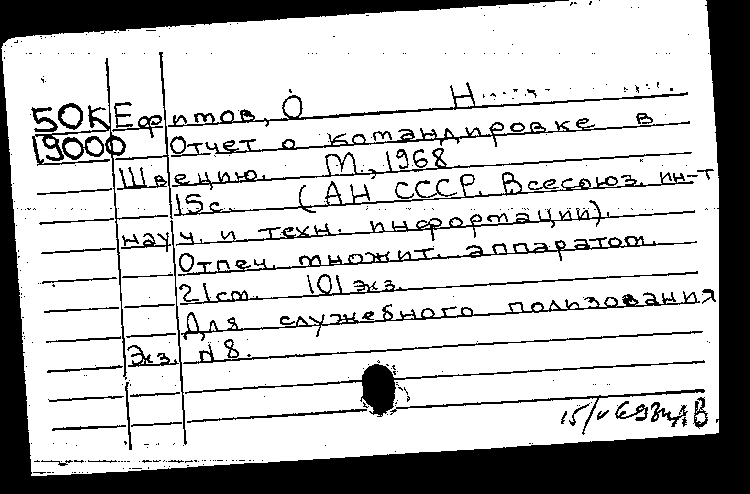 50К Ефимов, О Н
19000 Отчет о командировке в
Швецию. М., 1968
15с. (АН СССР. Всесоюз. ин-т
науч. и техн. информации).
Отпеч. множит. аппаратом.
21см. 101 экз.
Для служебного пользования
Экз. N 8.